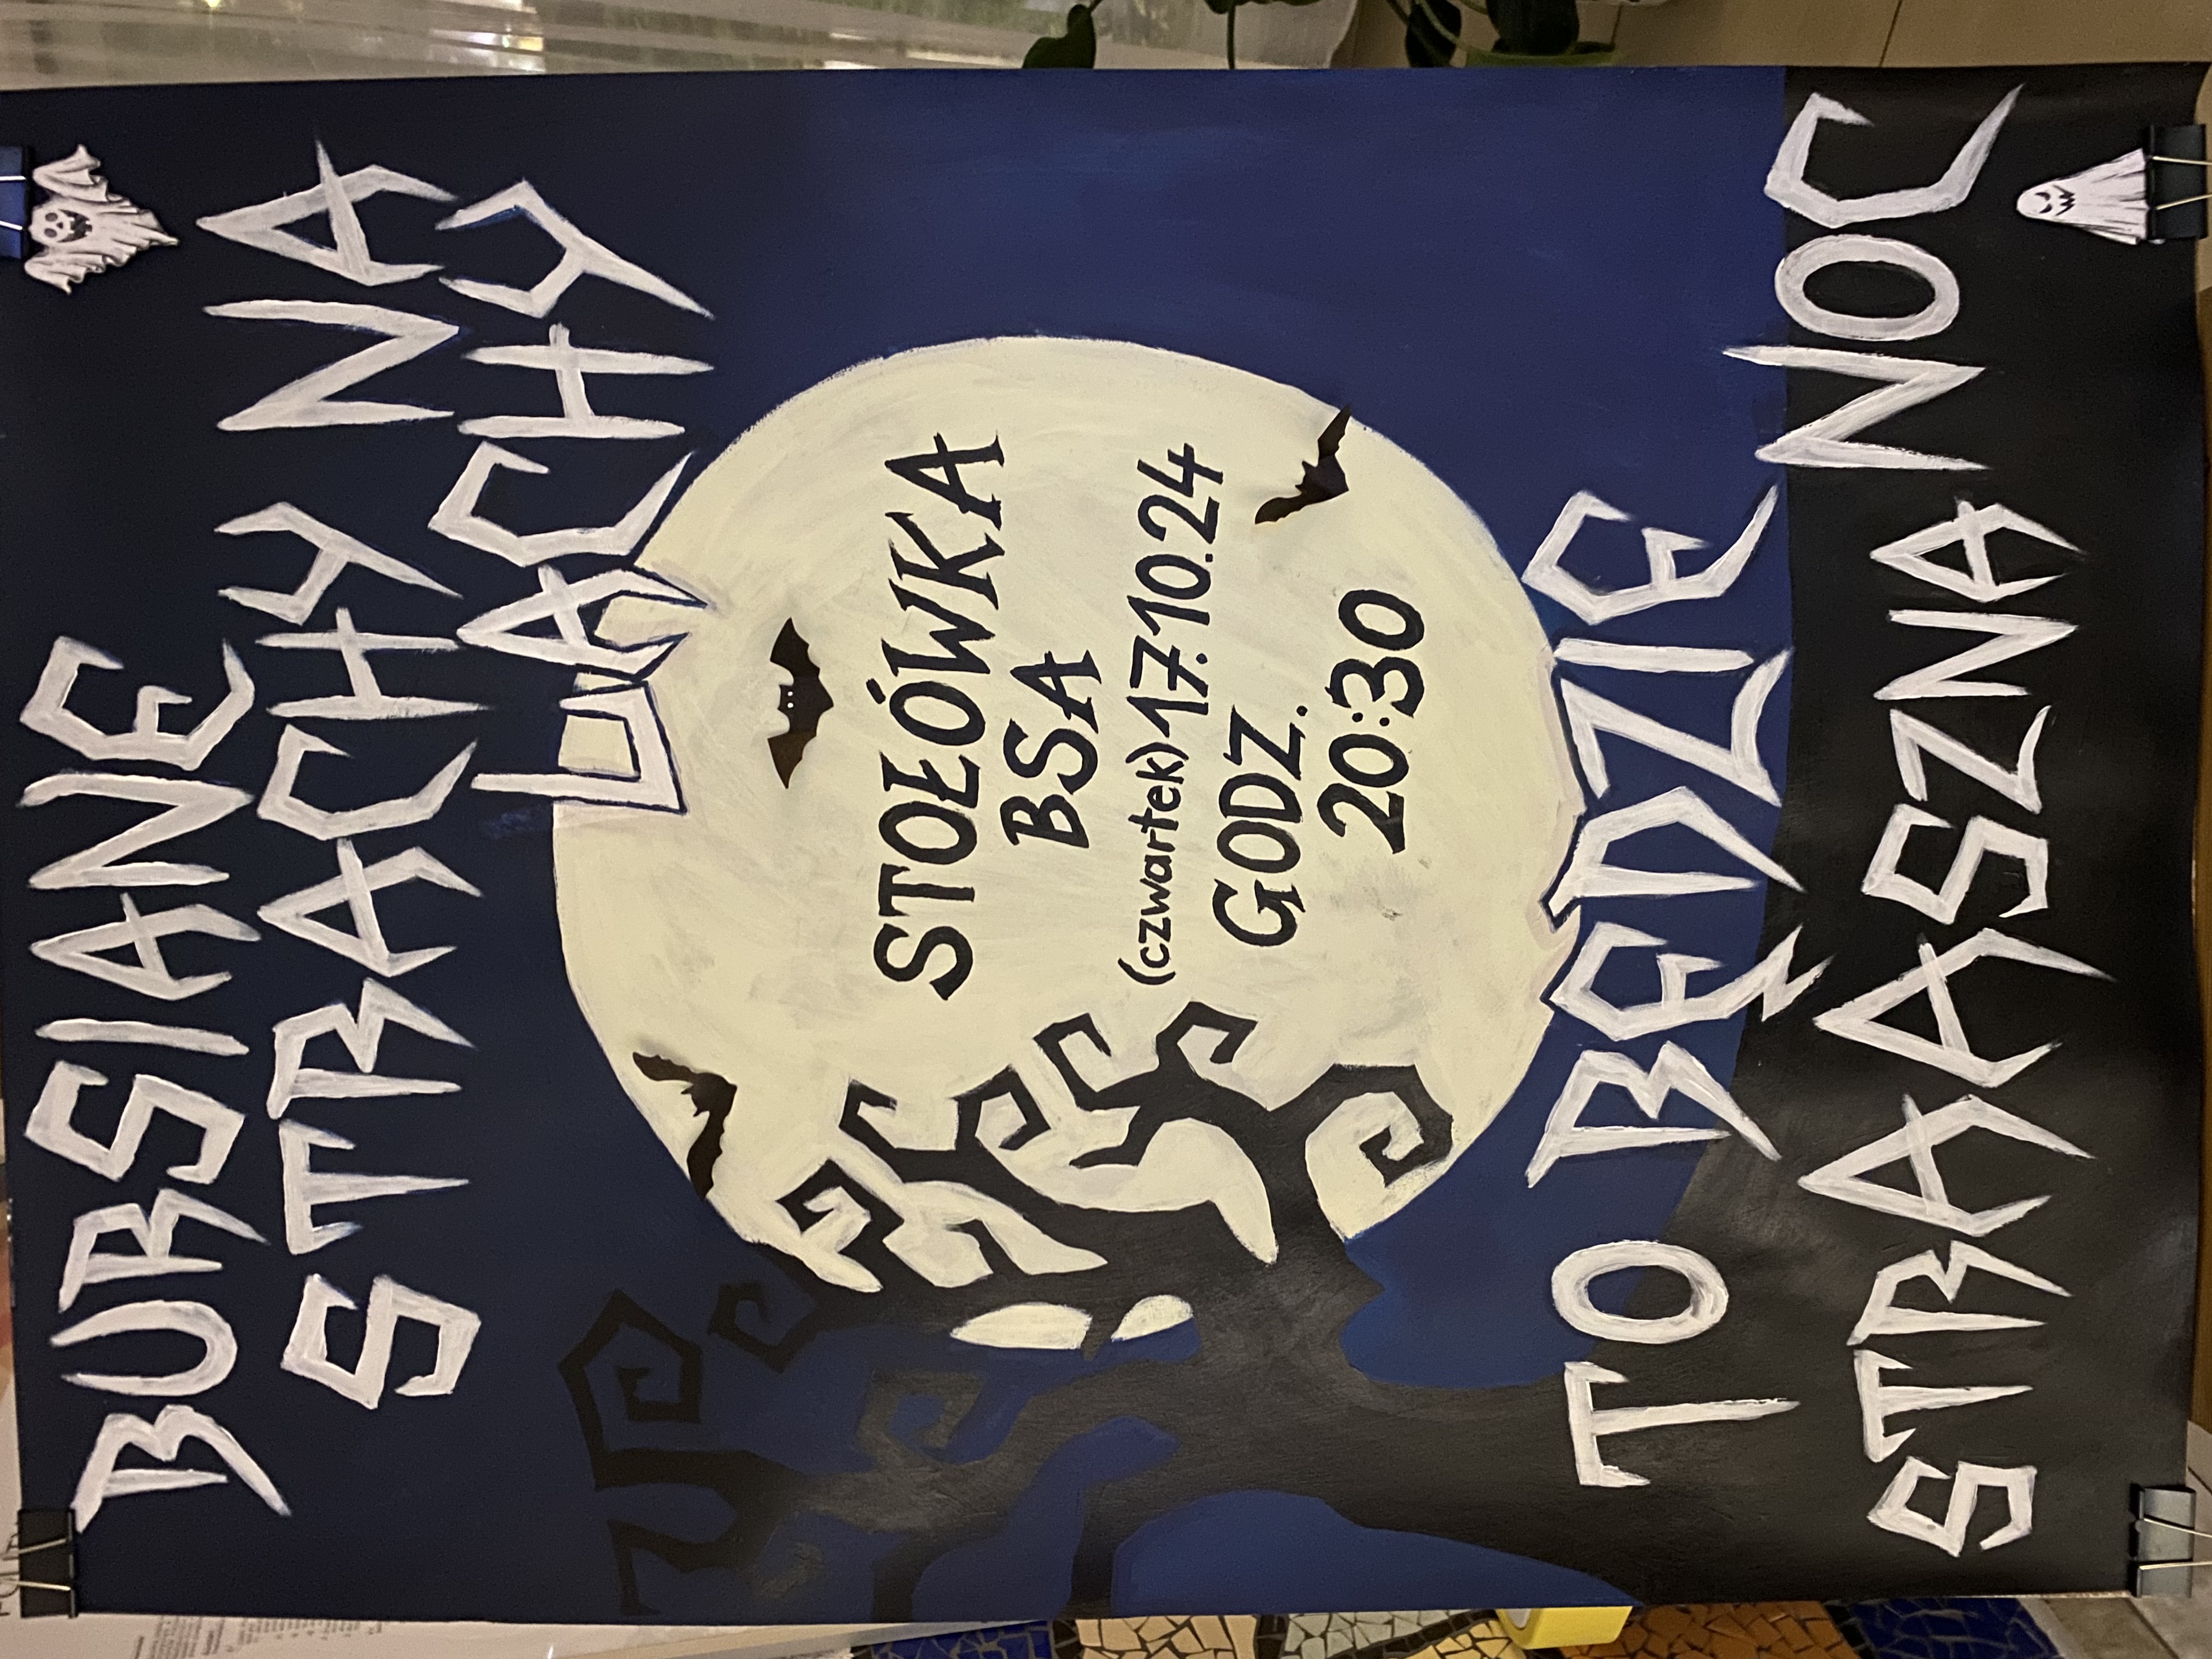 BURSIANE
STRACHY NA
LACHY
STOŁÓWKA
BSA
(czwartek) 17.10.24
GODZ.
20:30
TO BĘDZIE
STRAASZNA NOC